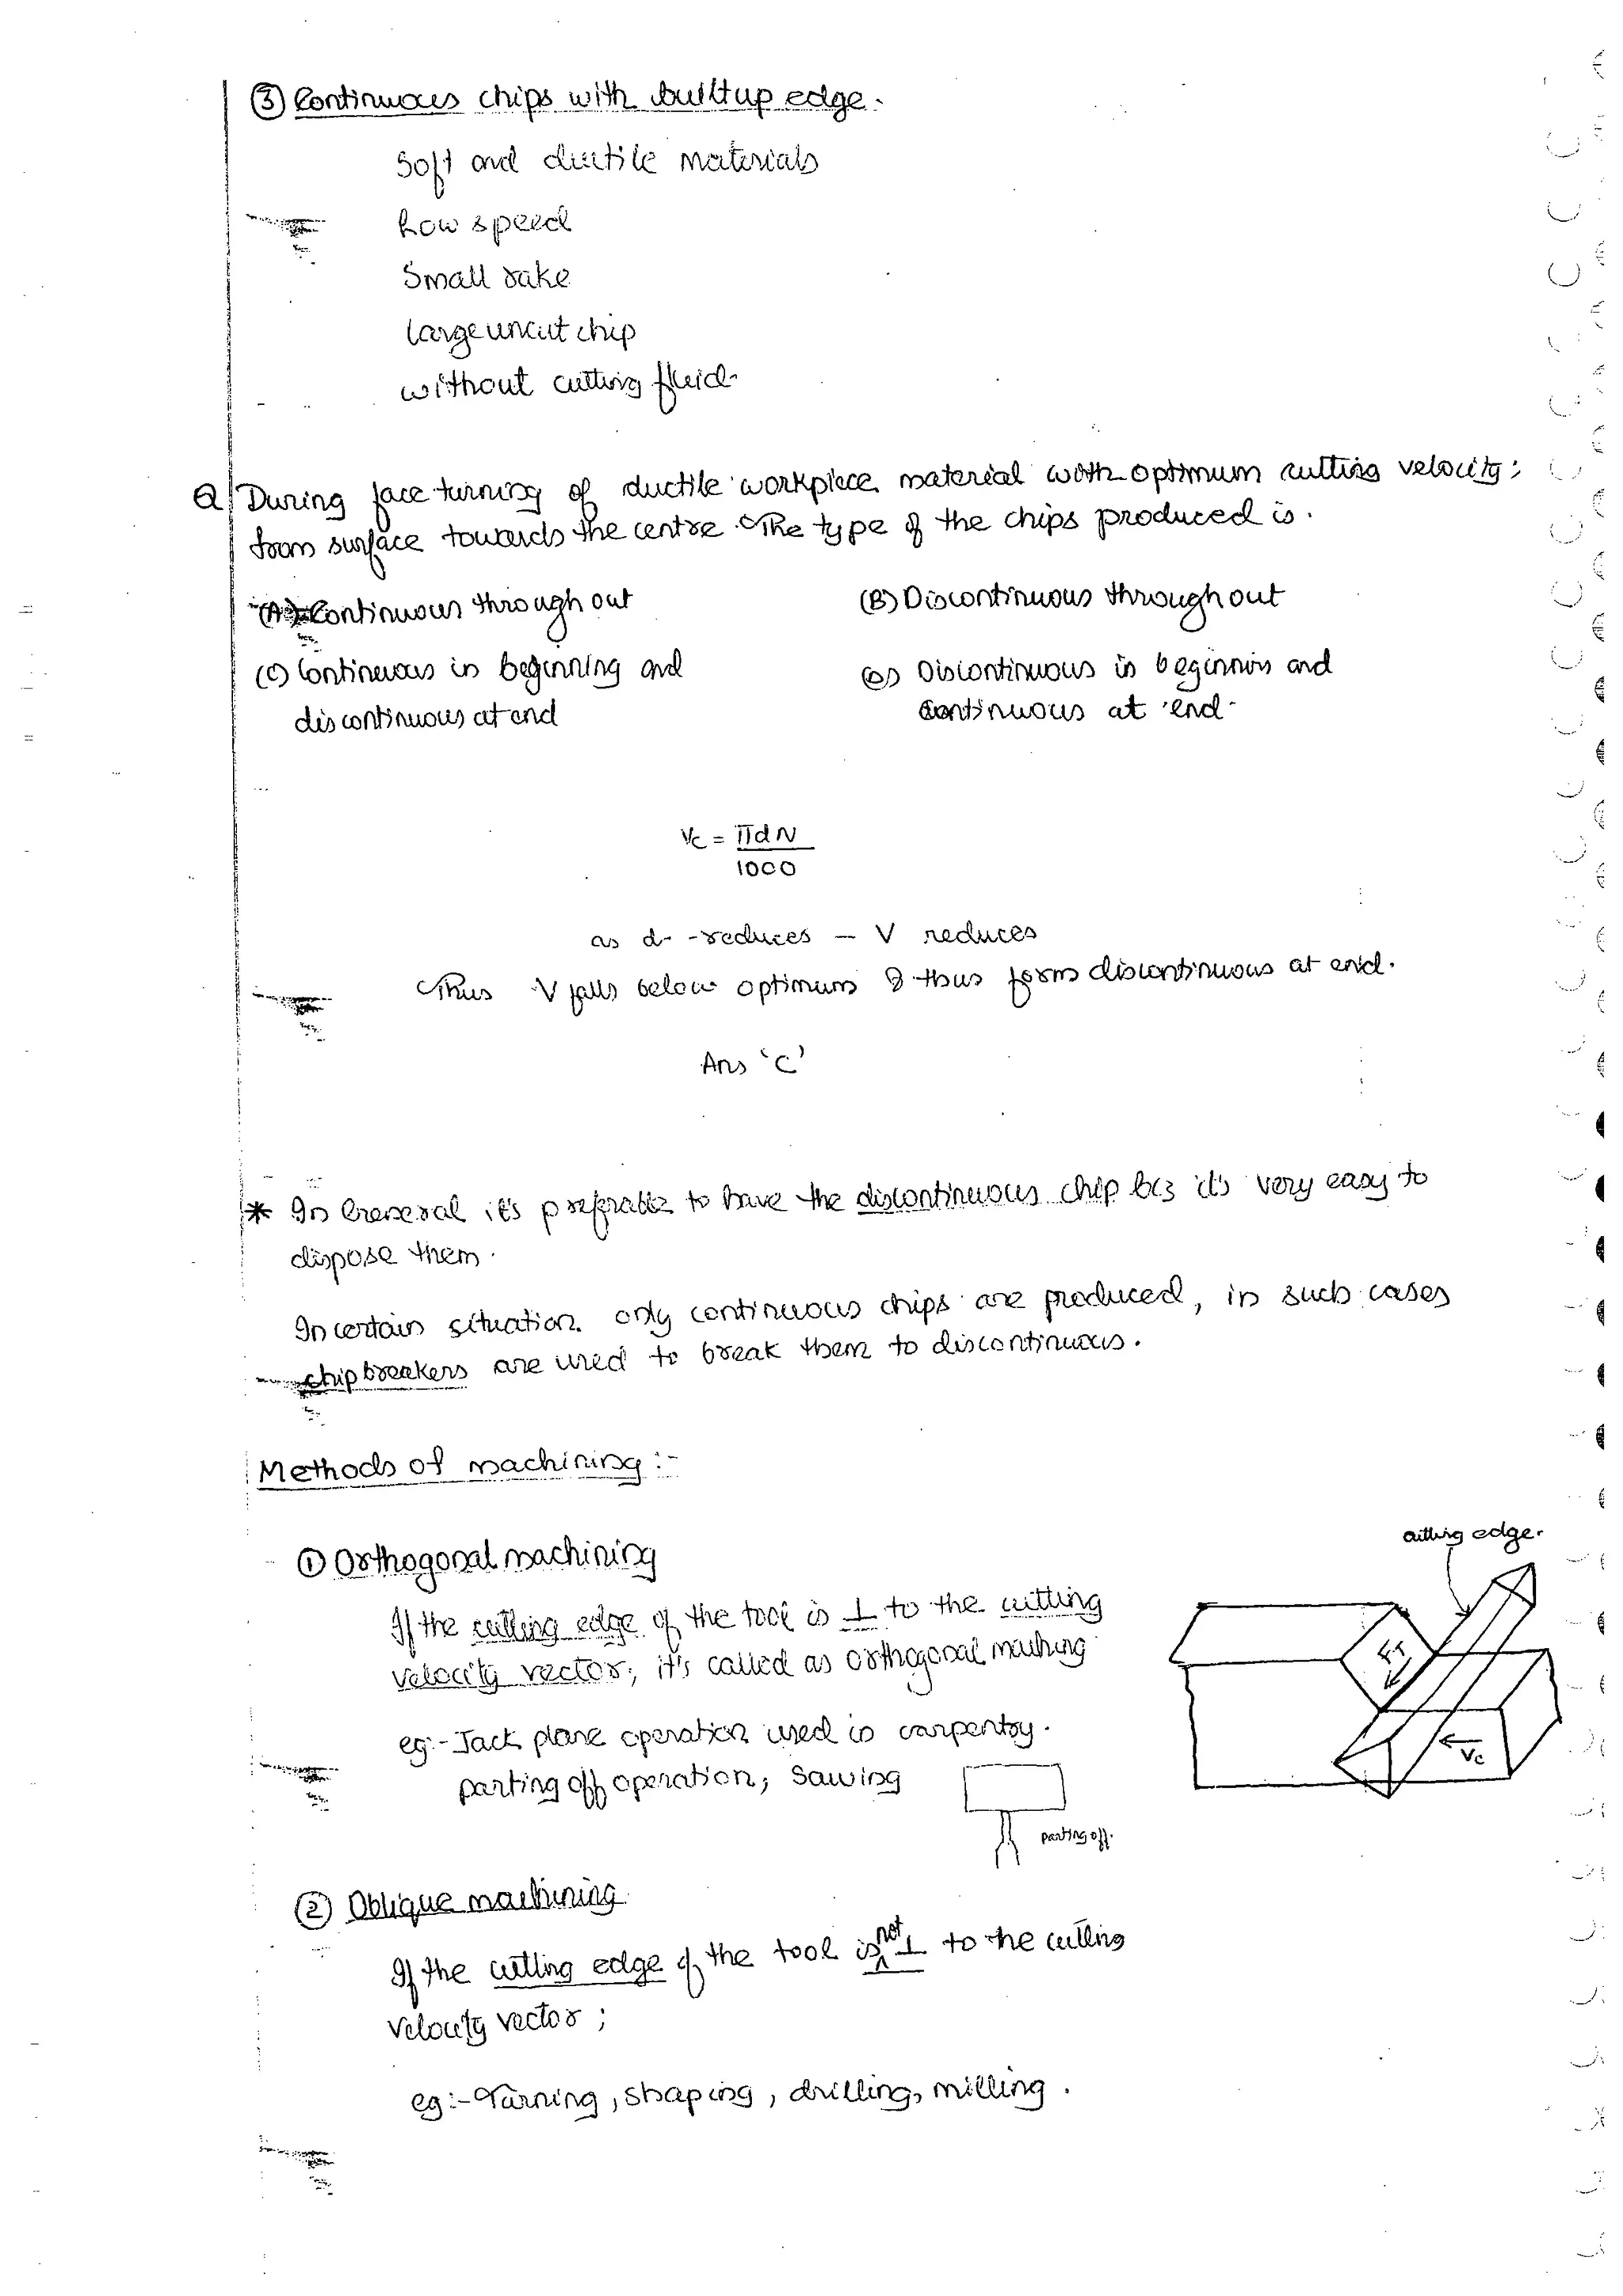 ③ Continuous chips with builtup edge.
Soft and ductile materials
Low speed
Small rake
large uncut chip
without cutting fluid.
Q/ During face turning of ductile workpiece material with optimum cutting velocity;
from surface towards the centre. The type of the chips produced is.
(A) Continuous through out
(B) Discontinuous through out
(C) Continuous in beginning and
discontinuous at end
(D) Discontinuous in beginnin and
continuous at end.
Vc = πdN
1000
as d- -reduces - V reduces
Thus V falls below optimum & thus form discontinuous at end.
Ans 'C'
* In General it's preferable to have the discontinuous chip bcz it's very easy to
dispose them.
In certain situation only continuous chips are produced, in such cases
chip breakers are used to break them to discontinuous.
Methods of machining :-
① Orthogonal machining
If the cutting edge of the tool is ⊥ to the cutting
velocity vector; it's called as orthogonal machining
eg:- Jack plane operation used in carpentry.
parting off operation; Sawing
cutting edge.
Vc
parting off.
② Oblique machining
If the cutting edge of the tool is not ⊥ to the cutting
velocity vector ;
eg:- Turning, shaping, drilling, milling.